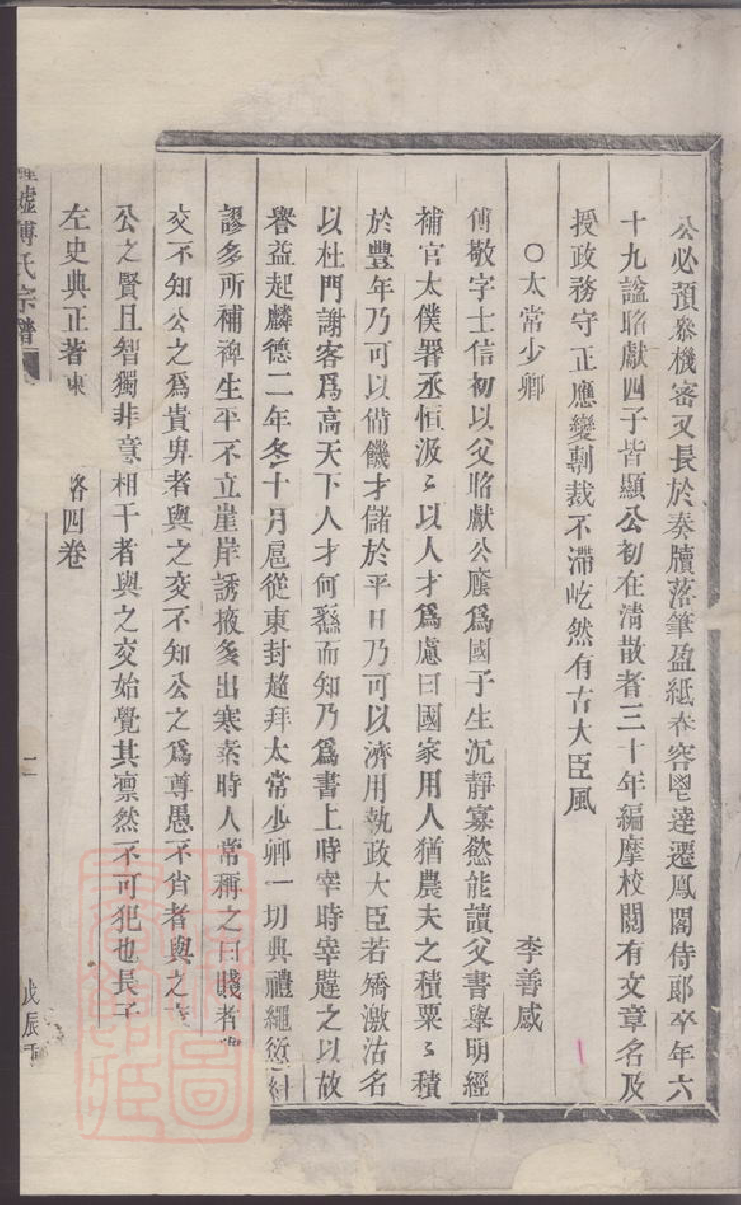 公必預叅機密又長於奏牘落筆盈紙春容鬯達遷鳳閣侍郎卒年六
十九諡昭獻四子皆顯公初在清散者三十年編摩校閱有文章名及
授政務守正應變剸裁不滯屹然有古大臣風
○太常少卿
李善感
傅敬字士信初以父昭獻公廕爲國子生沉靜寡慾能讀父書舉明經
補官太僕署丞恒汲〻以人才爲慮曰國家用人猶農夫之積粟〻積
於豐年乃可以備饑才儲於平日乃可以濟用執政大臣若矯激沽名
以杜門謝客爲高天下人才何繇而知乃爲書上時宰時宰韙之以故
譽益起麟德二年冬十月扈從東封趨拜太常少卿一切典禮繩愆糾
謬多所補裨生平不立崖岸誘掖多出寒素時人常稱之曰賤者
交不知公之爲貴卑者與之交不知公之爲尊愚不肖者與之
公之賢且智獨非意相干者與之交始覺其凛然不可犯也長子
左史典正著東
畧四卷
墟傅氏宗譜
二
戊辰